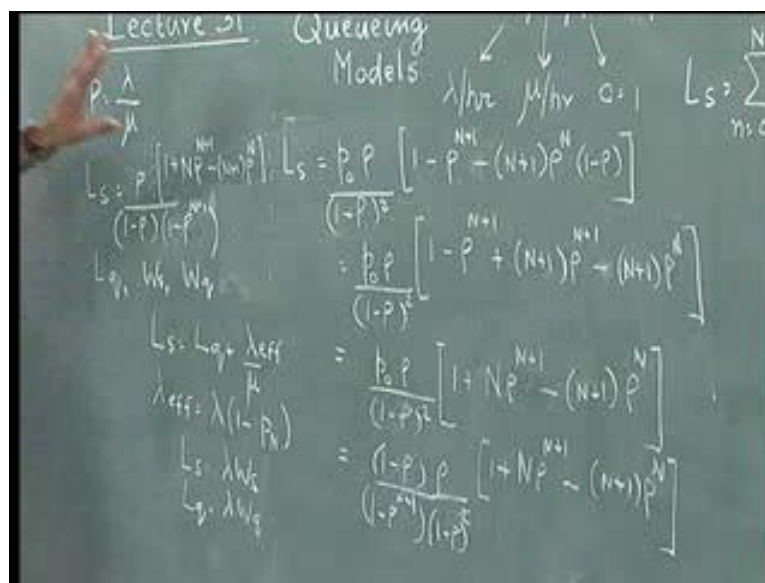 Lecture 31
Queueing
Models
λ/hr μ/hr c=1
L_s = ∑_{n=0}^{N}
ρ = λ/μ
L_s = ρ[1+Nρ^{N+1}-(N+1)ρ^N] / (1-ρ)(1-ρ^{N+1})
L_q, W_s, W_q
L_s = L_q + λeff/μ
λeff = λ(1-p_N)
L_s = λW_s
L_q = λW_q
L_s = p_0 ρ/(1-ρ)^2 [1-ρ^{N+1}-(N+1)ρ^N(1-ρ)]
= p_0 ρ/(1-ρ)^2 [1-ρ^{N+1}+(N+1)ρ^{N+1}-(N+1)ρ^N]
= p_0 ρ/(1-ρ)^2 [1+Nρ^{N+1}-(N+1)ρ^N]
= (1-ρ)ρ/(1-ρ^{N+1})(1-ρ)^2 [1+Nρ^{N+1}-(N+1)ρ^N]